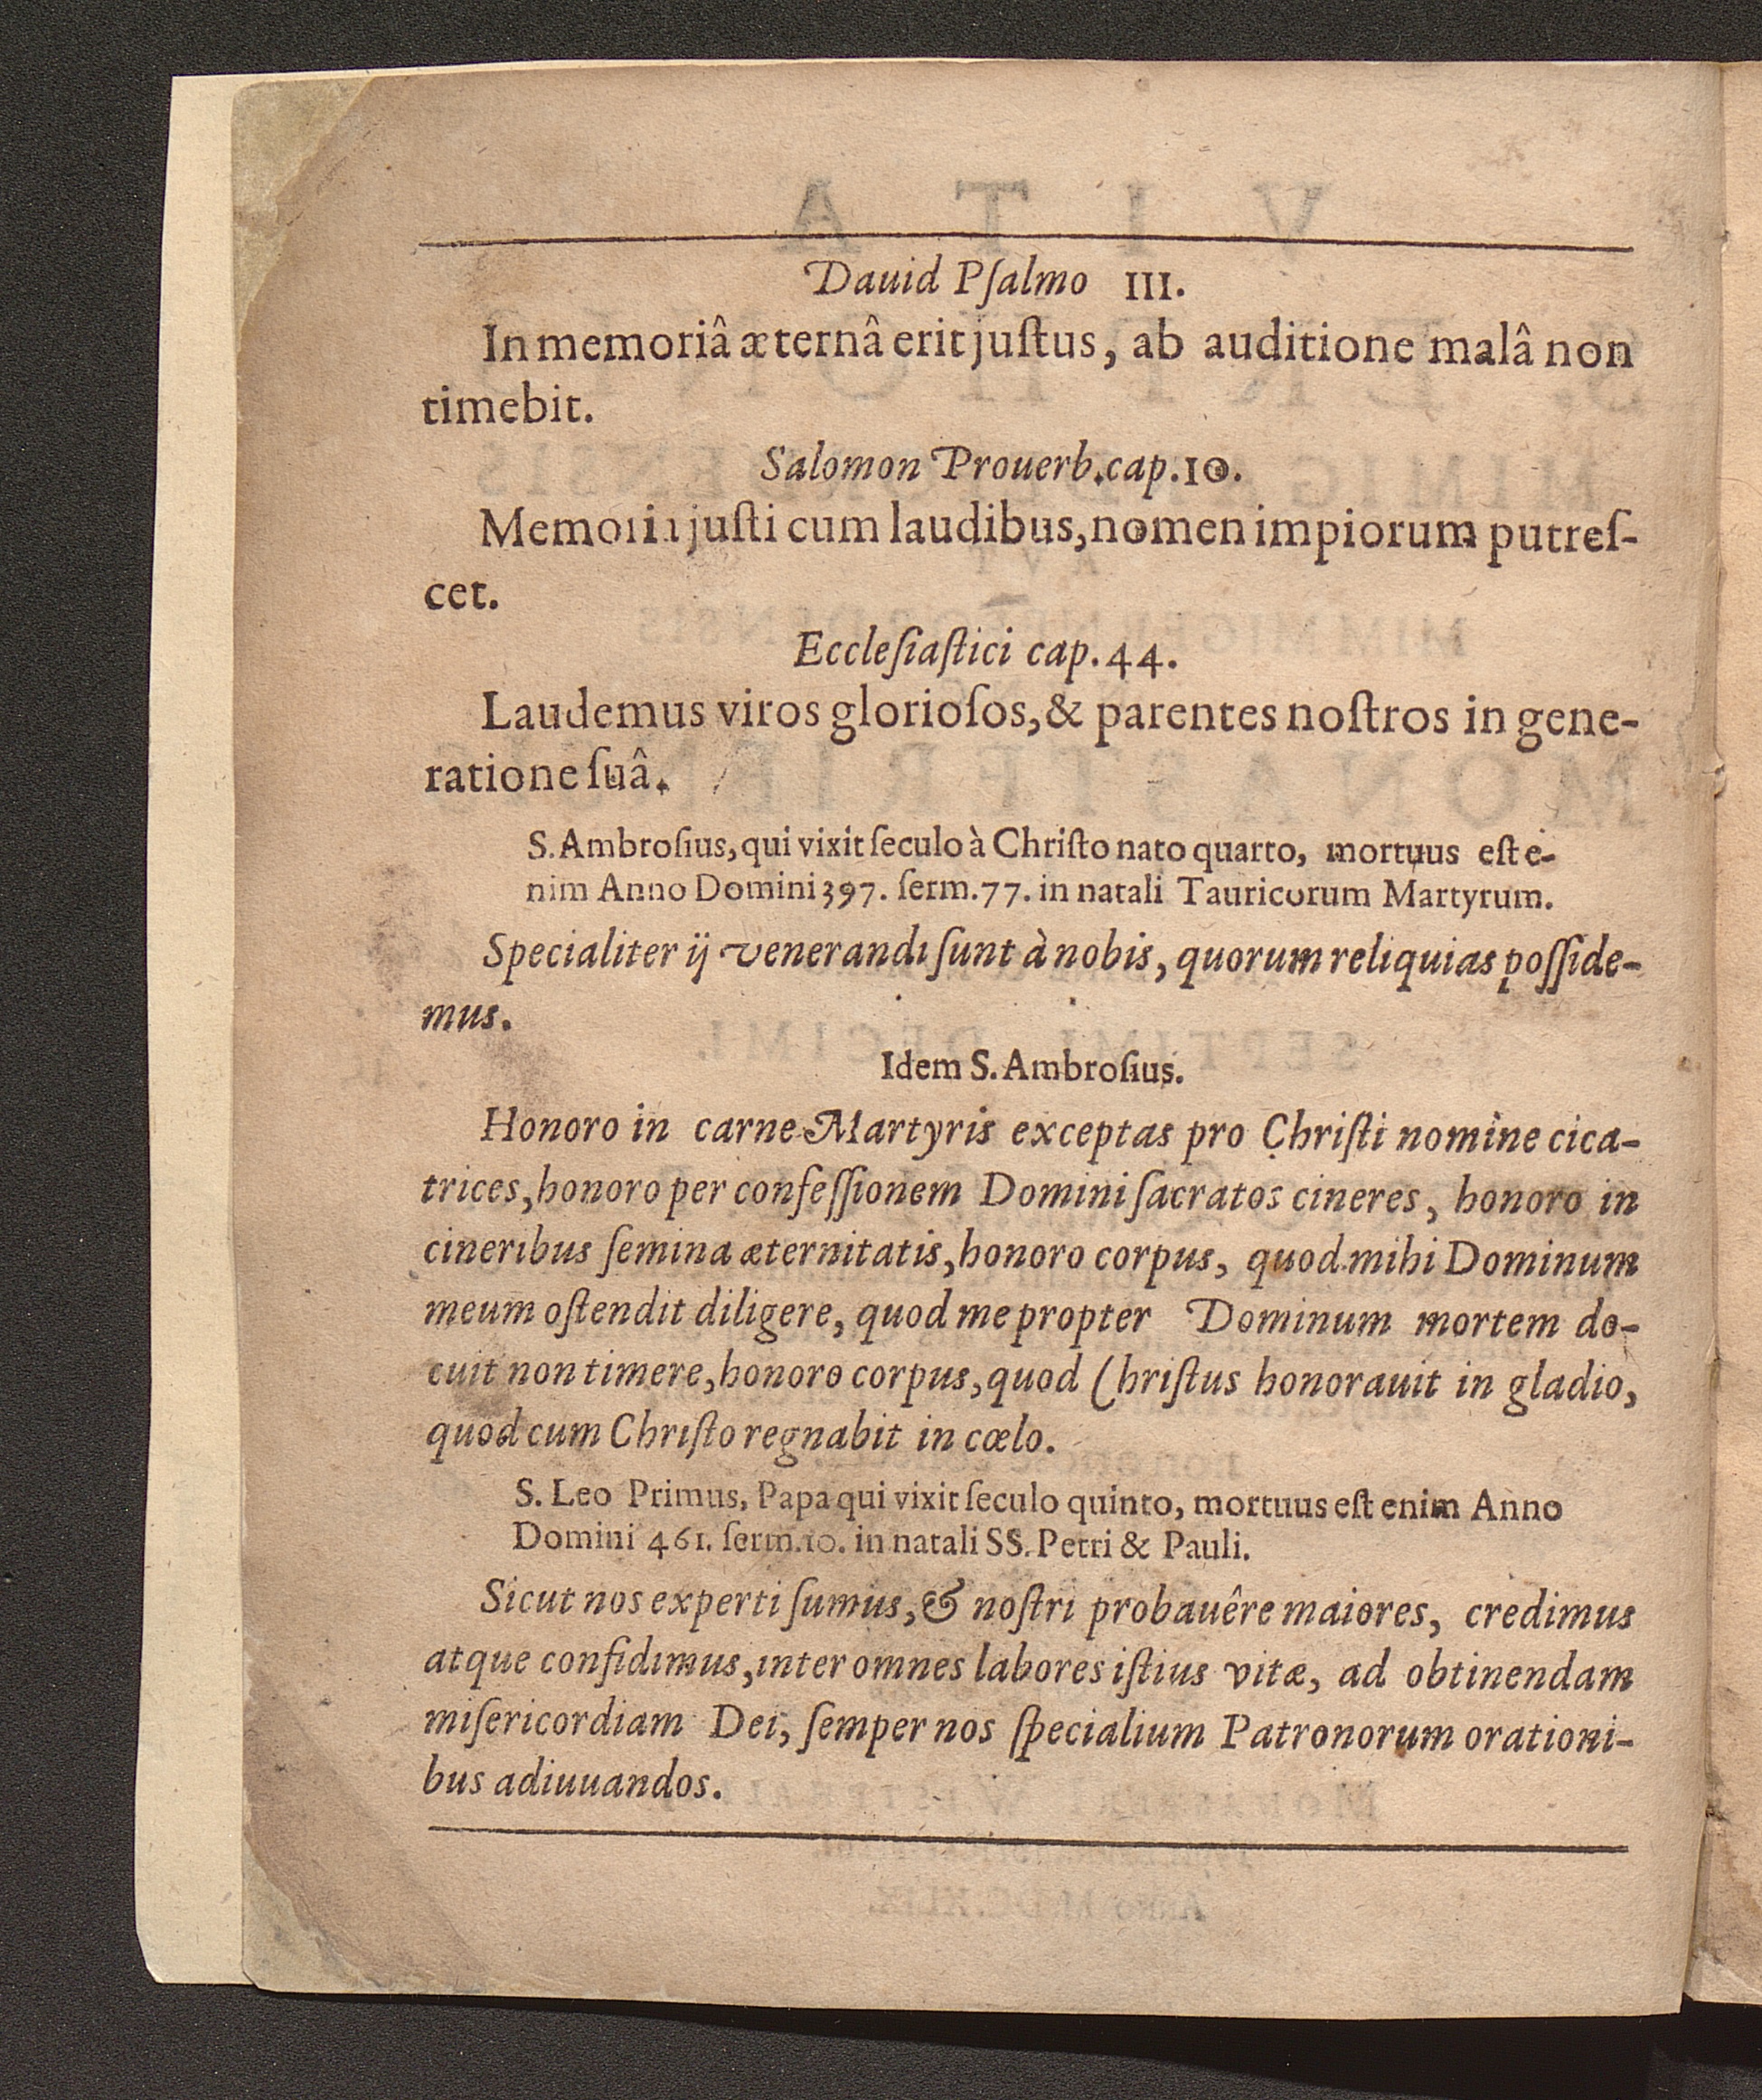 Dauid Pſalmo III.
In memoriâ æternâ erit juſtus, ab auditione malâ non
timebit.
Salomon Prouerb. cap. 10.
Memoria juſti cum laudibus, nomen impiorum putreſ-
cet.
Eccleſiaſtici cap. 44.
Laudemus viros glorioſos, & parentes noſtros in gene-
ratione ſuâ.
S. Ambroſius, qui vixit ſeculo à Chriſto nato quarto, mortuus eſt e-
nim Anno Domini 397. ſerm. 77. in natali Tauricorum Martyrum.
Specialiter ij venerandi ſunt à nobis, quorum reliquias poſſide-
mus.
Idem S. Ambroſius.
Honoro in carne Martyris exceptas pro Chriſti nomine cica-
trices, honoro per confeſſionem Domini ſacratos cineres, honoro in
cineribus ſemina æternitatis, honoro corpus, quod mihi Dominum
meum oſtendit diligere, quod me propter Dominum mortem do-
cuit non timere, honoro corpus, quod Chriſtus honorauit in gladio,
quod cum Chriſto regnabit in cœlo.
S. Leo Primus, Papa qui vixit ſeculo quinto, mortuus eſt enim Anno
Domini 461. ſerm. 10. in natali SS. Petri & Pauli.
Sicut nos experti ſumus, & noſtri probauêre maiores, credimus
atque confidimus, inter omnes labores iſtius vitæ, ad obtinendam
miſericordiam Dei, ſemper nos ſpecialium Patronorum orationi-
bus adiuuandos.